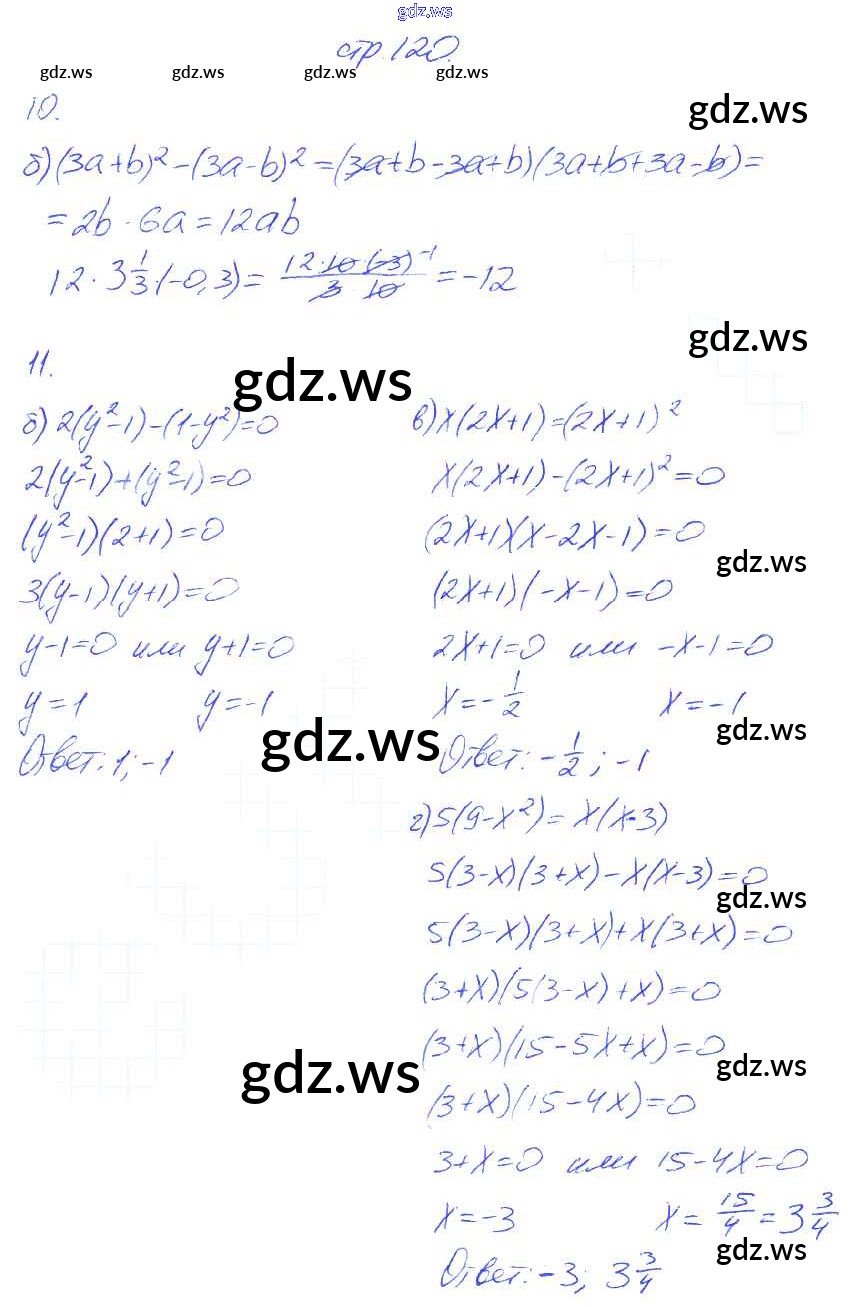 gdz.ws
стр. 120.
gdz.ws gdz.ws gdz.ws gdz.ws
gdz.ws
10.
б) (3a+b)² - (3a-b)² = (3a+b-3a+b)(3a+b+3a-b) =
= 2b · 6a = 12ab
12 · 3 1/3 · (-0,3) = 12·10·(-3)⁻¹ / 3·10 = -12
gdz.ws
11.
gdz.ws
б) 2(y²-1)-(1-y²)=0
2(y²-1)+(y²-1)=0
(y²-1)(2+1)=0
3(y-1)(y+1)=0
y-1=0 или y+1=0
y=1 y=-1
Ответ: 1; -1
в) x(2x+1)=(2x+1)²
x(2x+1)-(2x+1)²=0
(2x+1)(x-2x-1)=0
gdz.ws
(2x+1)(-x-1)=0
2x+1=0 или -x-1=0
x=-1/2 x=-1
gdz.ws
gdz.ws
Ответ: -1/2; -1
г) 5(9-x²)=x(x-3)
5(3-x)(3+x)-x(x-3)=0
gdz.ws
5(3-x)(3+x)+x(3+x)=0
(3+x)(5(3-x)+x)=0
(3+x)(15-5x+x)=0
gdz.ws
gdz.ws
(3+x)(15-4x)=0
3+x=0 или 15-4x=0
x=-3 x=15/4=3 3/4
gdz.ws
Ответ: -3; 3 3/4